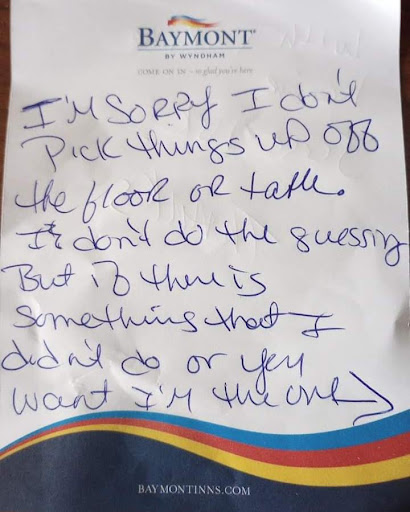 BAYMONT®
BY WYNDHAM
COME ON IN – so glad you're here
I'M SORRY I don't
Pick things up off
the floor or table.
I don't do the guessing
But if there is
Something that I
didn't do or you
want I'm the one
BAYMONTINNS.COM